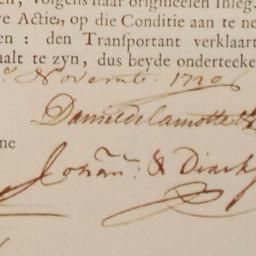 volgens haar origineelen Inleg
Actien op die Conditie aan te ne
en : den Tranſportant verklaart
aalt te zyn, dus beyde onderteeke
Novemb. 1720
Daniel de la motte
ne
Johan & Dirck